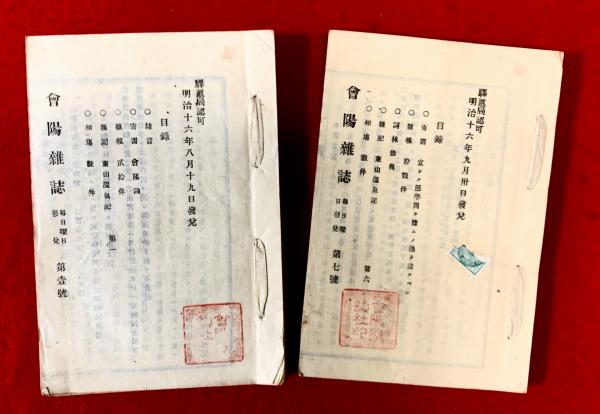 驛遞局認可
明治十六年八月十九日發兌
目錄
○緒言
○寄書 會陽論
○雜報 貳拾件
○雜記 東山溫泉記 第一
○相塲 數件
會陽雜誌 每日曜日發兌 第壹號
驛遞局認可
明治十六年九月卅日發兌
目錄
○寄書
○雜報 拾數件
○詞林
○雜記 東山溫泉記 第六
○相塲 數件
會陽雜誌 每日曜日發兌 第七號